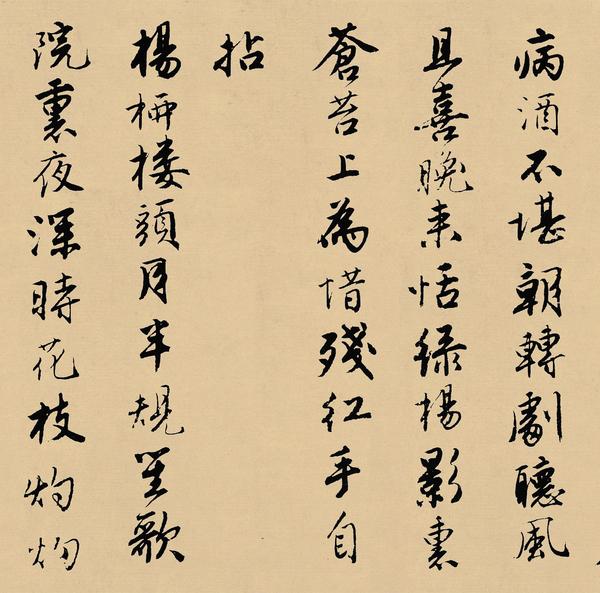 病酒不堪朝轉劇聽風
且喜晚来恬綠楊影裏
蒼苔上為惜殘紅手自
拈
楊柳楼頭月半規笙歌
院裏夜深時花枝灼灼